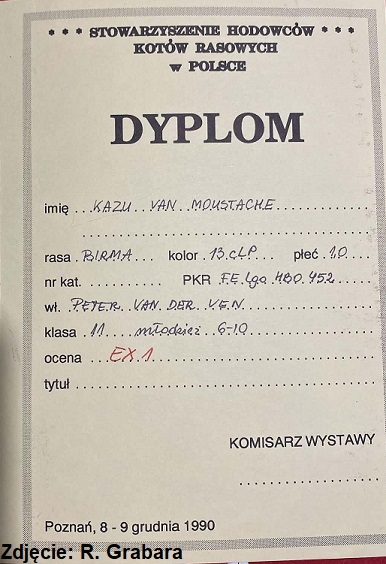 * * * STOWARZYSZENIE HODOWCÓW * * *
KOTÓW RASOWYCH
w POLSCE
DYPLOM
imię ... KAZU .. VAN .. MOUSTACHE
rasa . BIRMA ... kolor . 13.cLP ... płeć . 1.0 .
nr kat. ........... PKR F.E. Lga HBO.452
wł. PETER. VAN. DER. VEN
klasa . 11 .... młodzież 6-10
ocena ... EX 1
tytuł
KOMISARZ WYSTAWY
Poznań, 8 - 9 grudnia 1990
Zdjęcie: R. Grabara